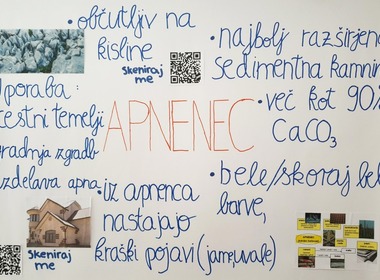 • občutljiv na
kisline
Skeniraj
me
• najbolj razširjena
sedimentna kamnina
Uporaba:
cestni temelji
gradnja zgradb
izdelava apna
APNENEC
• več kot 90%
CaCO₃
• bele/skoraj bele
barve,
• iz apnenca
nastajajo
kraški pojavi (jame, uvale)
Skeniraj
me